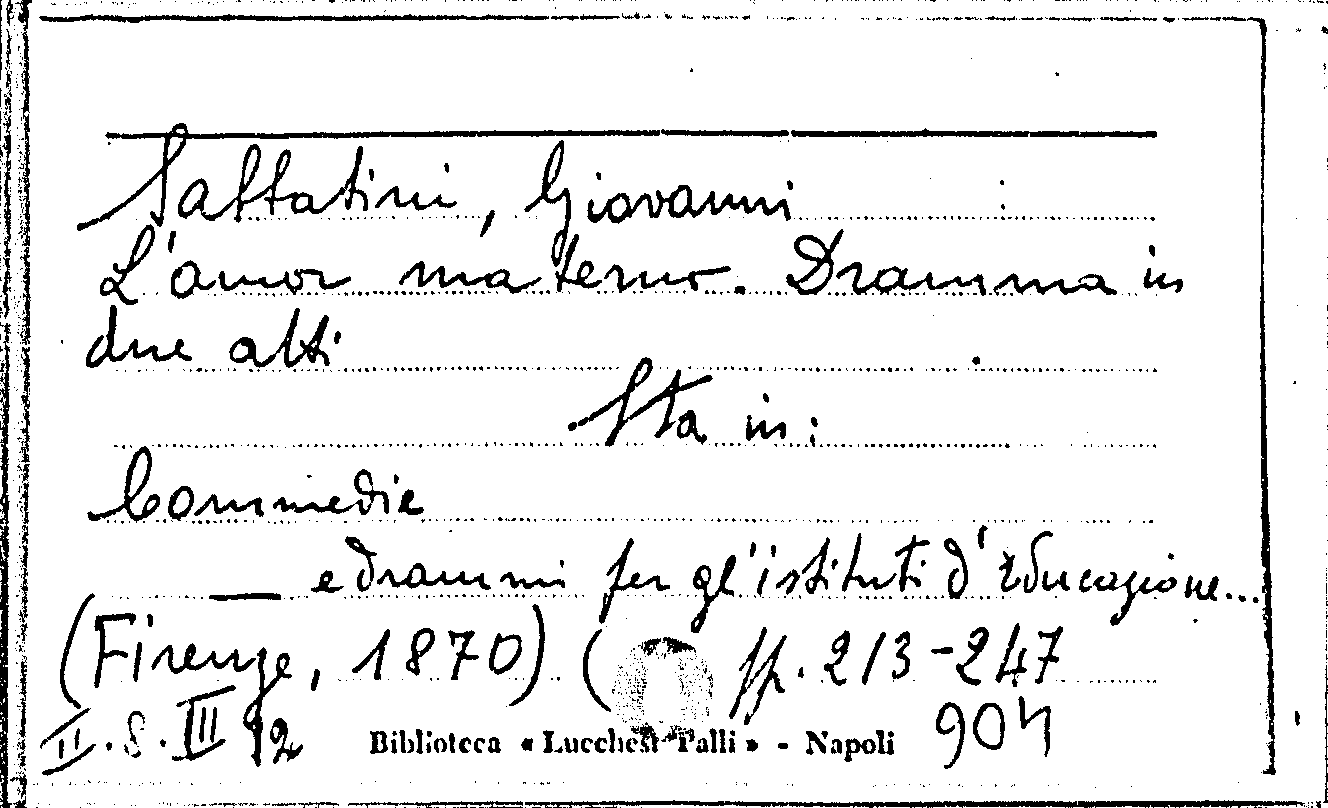 Sabbatini, Giovanni
L'amor materno. Dramma in
due atti
Sta in:
Commedie
— e drammi per gl'istituti d'Educazione...
(Firenze, 1870) ( pp. 213-247
II. 8. III 92
Biblioteca « Lucchesi Palli » - Napoli